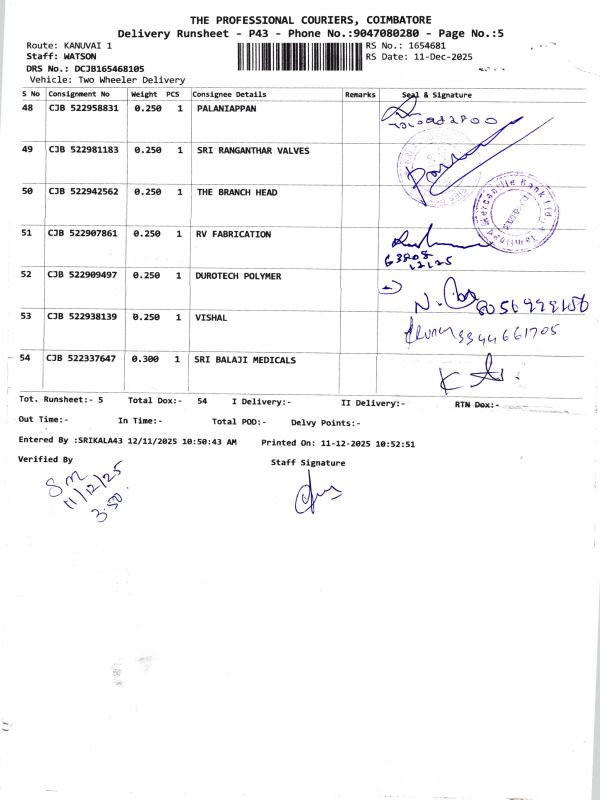 THE PROFESSIONAL COURIERS, COIMBATORE
Delivery Runsheet - P43 - Phone No.:9047080280 - Page No.:5
Route: KANUVAI 1 RS No.: 1654681
Staff: WATSON RS Date: 11-Dec-2025
DRS No.: DCJB165468105
Vehicle: Two Wheeler Delivery
S No Consignment No Weight PCS Consignee Details Remarks Seal & Signature
48 CJB 522958831 0.250 1 PALANIAPPAN
49 CJB 522981183 0.250 1 SRI RANGANTHAR VALVES
50 CJB 522942562 0.250 1 THE BRANCH HEAD
Mercantile Bank Ltd
51 CJB 522907861 0.250 1 RV FABRICATION
52 CJB 522909497 0.250 1 DUROTECH POLYMER
53 CJB 522938139 0.250 1 VISHAL
54 CJB 522337647 0.300 1 SRI BALAJI MEDICALS
Tot. Runsheet:- 5 Total Dox:- 54 I Delivery:- II Delivery:- RTN Dox:-
Out Time:- In Time:- Total POD:- Delvy Points:-
Entered By :SRIKALA43 12/11/2025 10:50:43 AM Printed On: 11-12-2025 10:52:51
Verified By Staff Signature
11/12/25
3.50